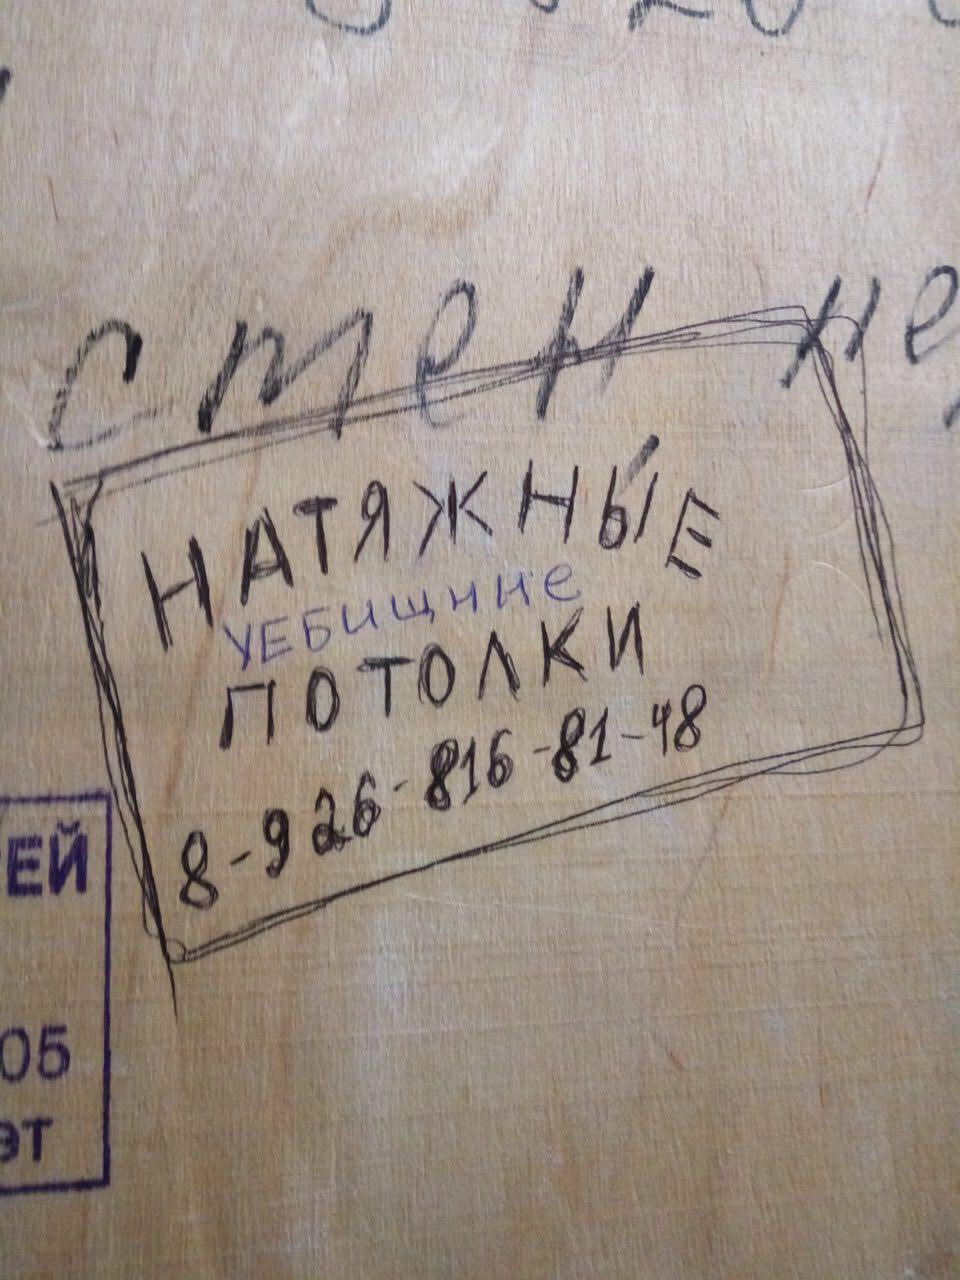 стен не
НАТЯЖНЫЕ
УЕБИЩНИЕ
ПОТОЛКИ
8-926-816-81-48
ЕЙ
05
эт